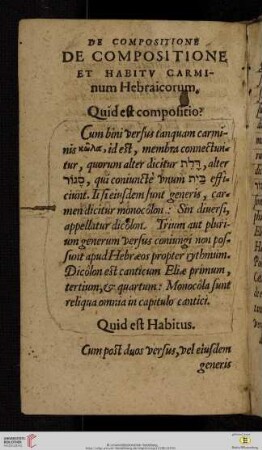 DE COMPOSITIONE
DE COMPOSITIONE
ET HABITV CARMI-
num Hebraicorum.
Quid est compositio?
Cum bini versus tanquam carmi-
nis κῶλα, id est, membra connectun-
tur, quorum alter dicitur דֶּלֶת, alter
סֶגוֹר, qui coniunctè vnum בַּיִת effi-
ciunt. Ii si eiusdem sunt generis, car-
men dicitur monocolon: Sin diuersi,
appellatur dicolon. Trium aut pluri-
um generum versus coniungi non pos-
sunt apud Hebræos propter rythmum.
Dicolon est canticum Eliæ primum,
tertium, & quartum: Monocola sunt
reliqua omnia in capitulo cantici.
Quid est Habitus.
Cum post duos versus, vel eiusdem
generis